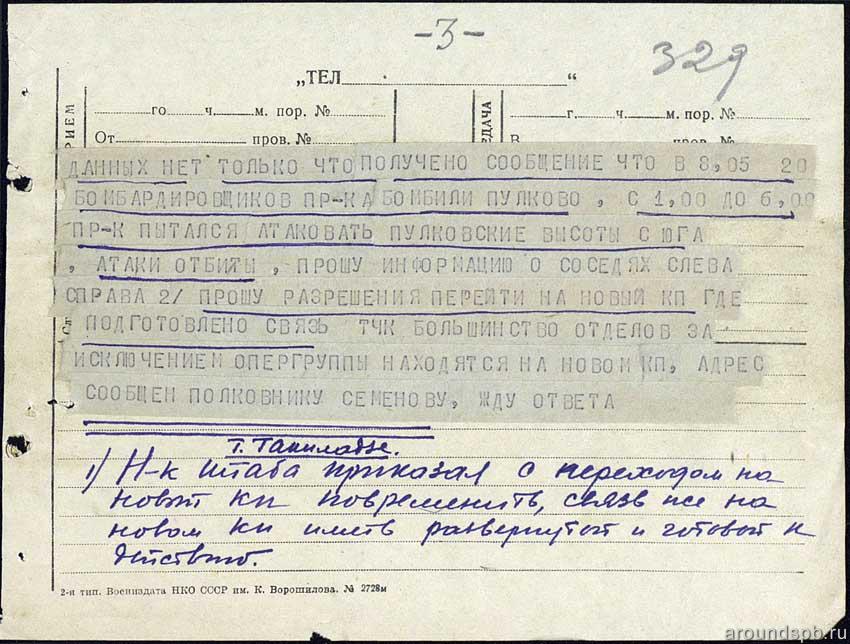 -3-
329
„ТЕЛ “
ПРИЕМ
го ч. м. пор. №
От пров. №
ПЕРЕДАЧА
г. ч. м. пор. №
В пров. №
ДАННЫХ НЕТ ТОЛЬКО ЧТО ПОЛУЧЕНО СООБЩЕНИЕ ЧТО В 8,05 20
БОМБАРДИРОВЩИКОВ ПР-КА БОМБИЛИ ПУЛКОВО , С 1,00 ДО 6,00
ПР-К ПЫТАЛСЯ АТАКОВАТЬ ПУЛКОВСКИЕ ВЫСОТЫ С ЮГА
, АТАКИ ОТБИТЫ , ПРОШУ ИНФОРМАЦИЮ О СОСЕДЯХ СЛЕВА
СПРАВА 2/ ПРОШУ РАЗРЕШЕНИЯ ПЕРЕЙТИ НА НОВЫЙ КП ГДЕ
ПОДГОТОВЛЕНО СВЯЗЬ ТЧК БОЛЬШИНСТВО ОТДЕЛОВ ЗА
ИСКЛЮЧЕНИЕМ ОПЕРГРУППЫ НАХОДЯТСЯ НА НОВОМ КП, АДРЕС
СООБЩЕН ПОЛКОВНИКУ СЕМЕНОВУ, ЖДУ ОТВЕТА
т.
1/ Н-к штаба приказал с переходом на
новый КП повременить, связь же на
новом КП иметь развернутой и готовой к
действию.
2-я тип. Воениздата НКО СССР им. К. Ворошилова. № 2728м
aroundspb.ru